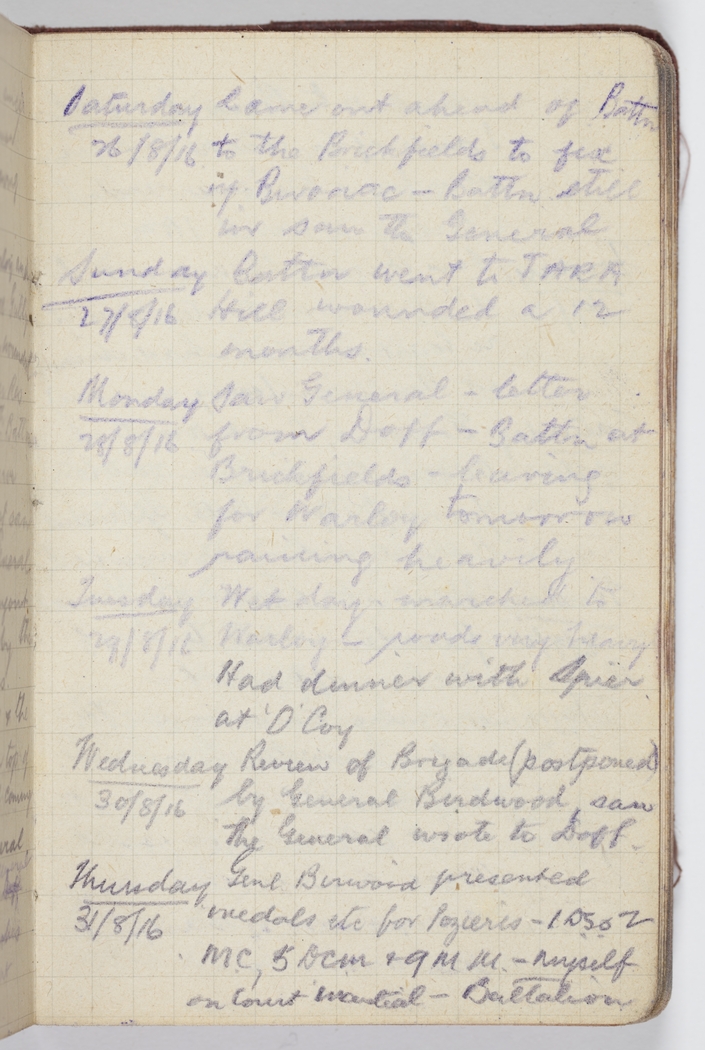 Saturday Came out ahead of Battn
26/8/16 to the Brickfields to fix
up Bivouac - Battn still
in saw the General
Sunday Battn went to TARA
27/8/16 Hill wounded a 12
months.
Monday Saw General - letter
28/8/16 from Doff - Battn at
Brickfields - leaving
for Warloy tomorrow
raining heavily
Tuesday Wet day marched to
29/8/16 Warloy - roads very heavy
Had dinner with Spier
at 'D' Coy
Wednesday Review of Brigade (postponed)
30/8/16 by General Birdwood, saw
the General wrote to Doff.
Thursday Genl Birwood presented
31/8/16 medals etc for Pozieres - 1 DSO 2
MC, 5 DCM + 9 M M. - Myself
on Court Martial - Battalion